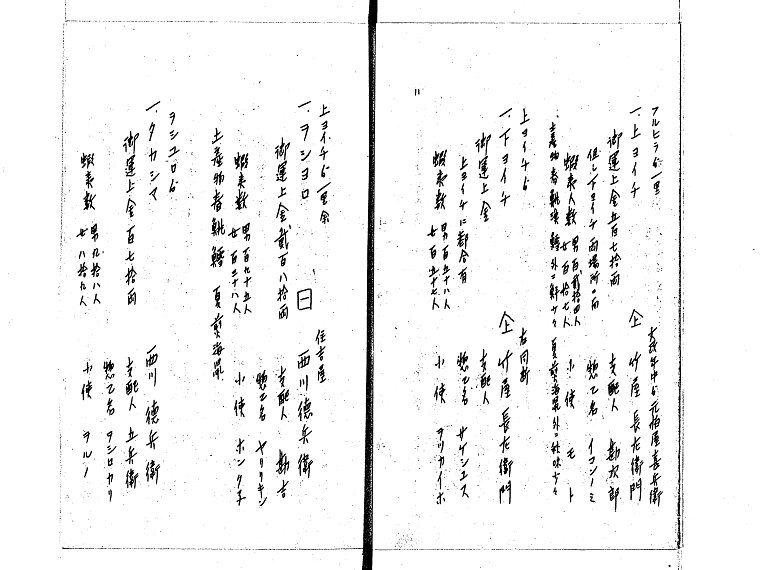 フルヒラゟ一里
文政年中ゟ元柏屋喜兵衛
一、上ヨイチ 仝 竹屋長左衛門
御運上金五百七拾両 支配人 勘次郎
但し下ヨイチ両場所〆両 惣乙名 イコンノミ
蝦夷人数 男百貳拾四人 女百拾七人 小使 モト
上ヨイチゟ 右同断
一、下ヨイチ 仝 竹屋長左衛門
御運上金 支配人
上ヨイチに都合有 惣乙名 サケシユス
蝦夷数 男百五十八人 女百五十七人 小使 ヲツカイホ
上ヨイチゟ一里余 住吉屋
一、ヲシヨロ 西川徳兵衛
御運上金貳百八拾両 支配人 勘吉
蝦夷数 男百九十五人 女百三十八人 惣乙名 ヤリクキン
土産物者鯡鱈 夏煎海鼠 小使 ホンクチ
ヲシユロゟ
一、タカシマ 西川徳兵衛
御運上金百七拾両 支配人 五兵衛
惣乙名 ヲシロカリ
蝦夷数 男九拾八人 女八拾九人 小使 ヲルノ